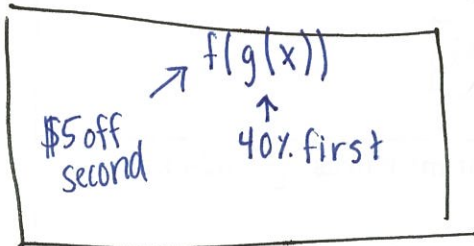 f(g(x))
$5 off
second
40% first